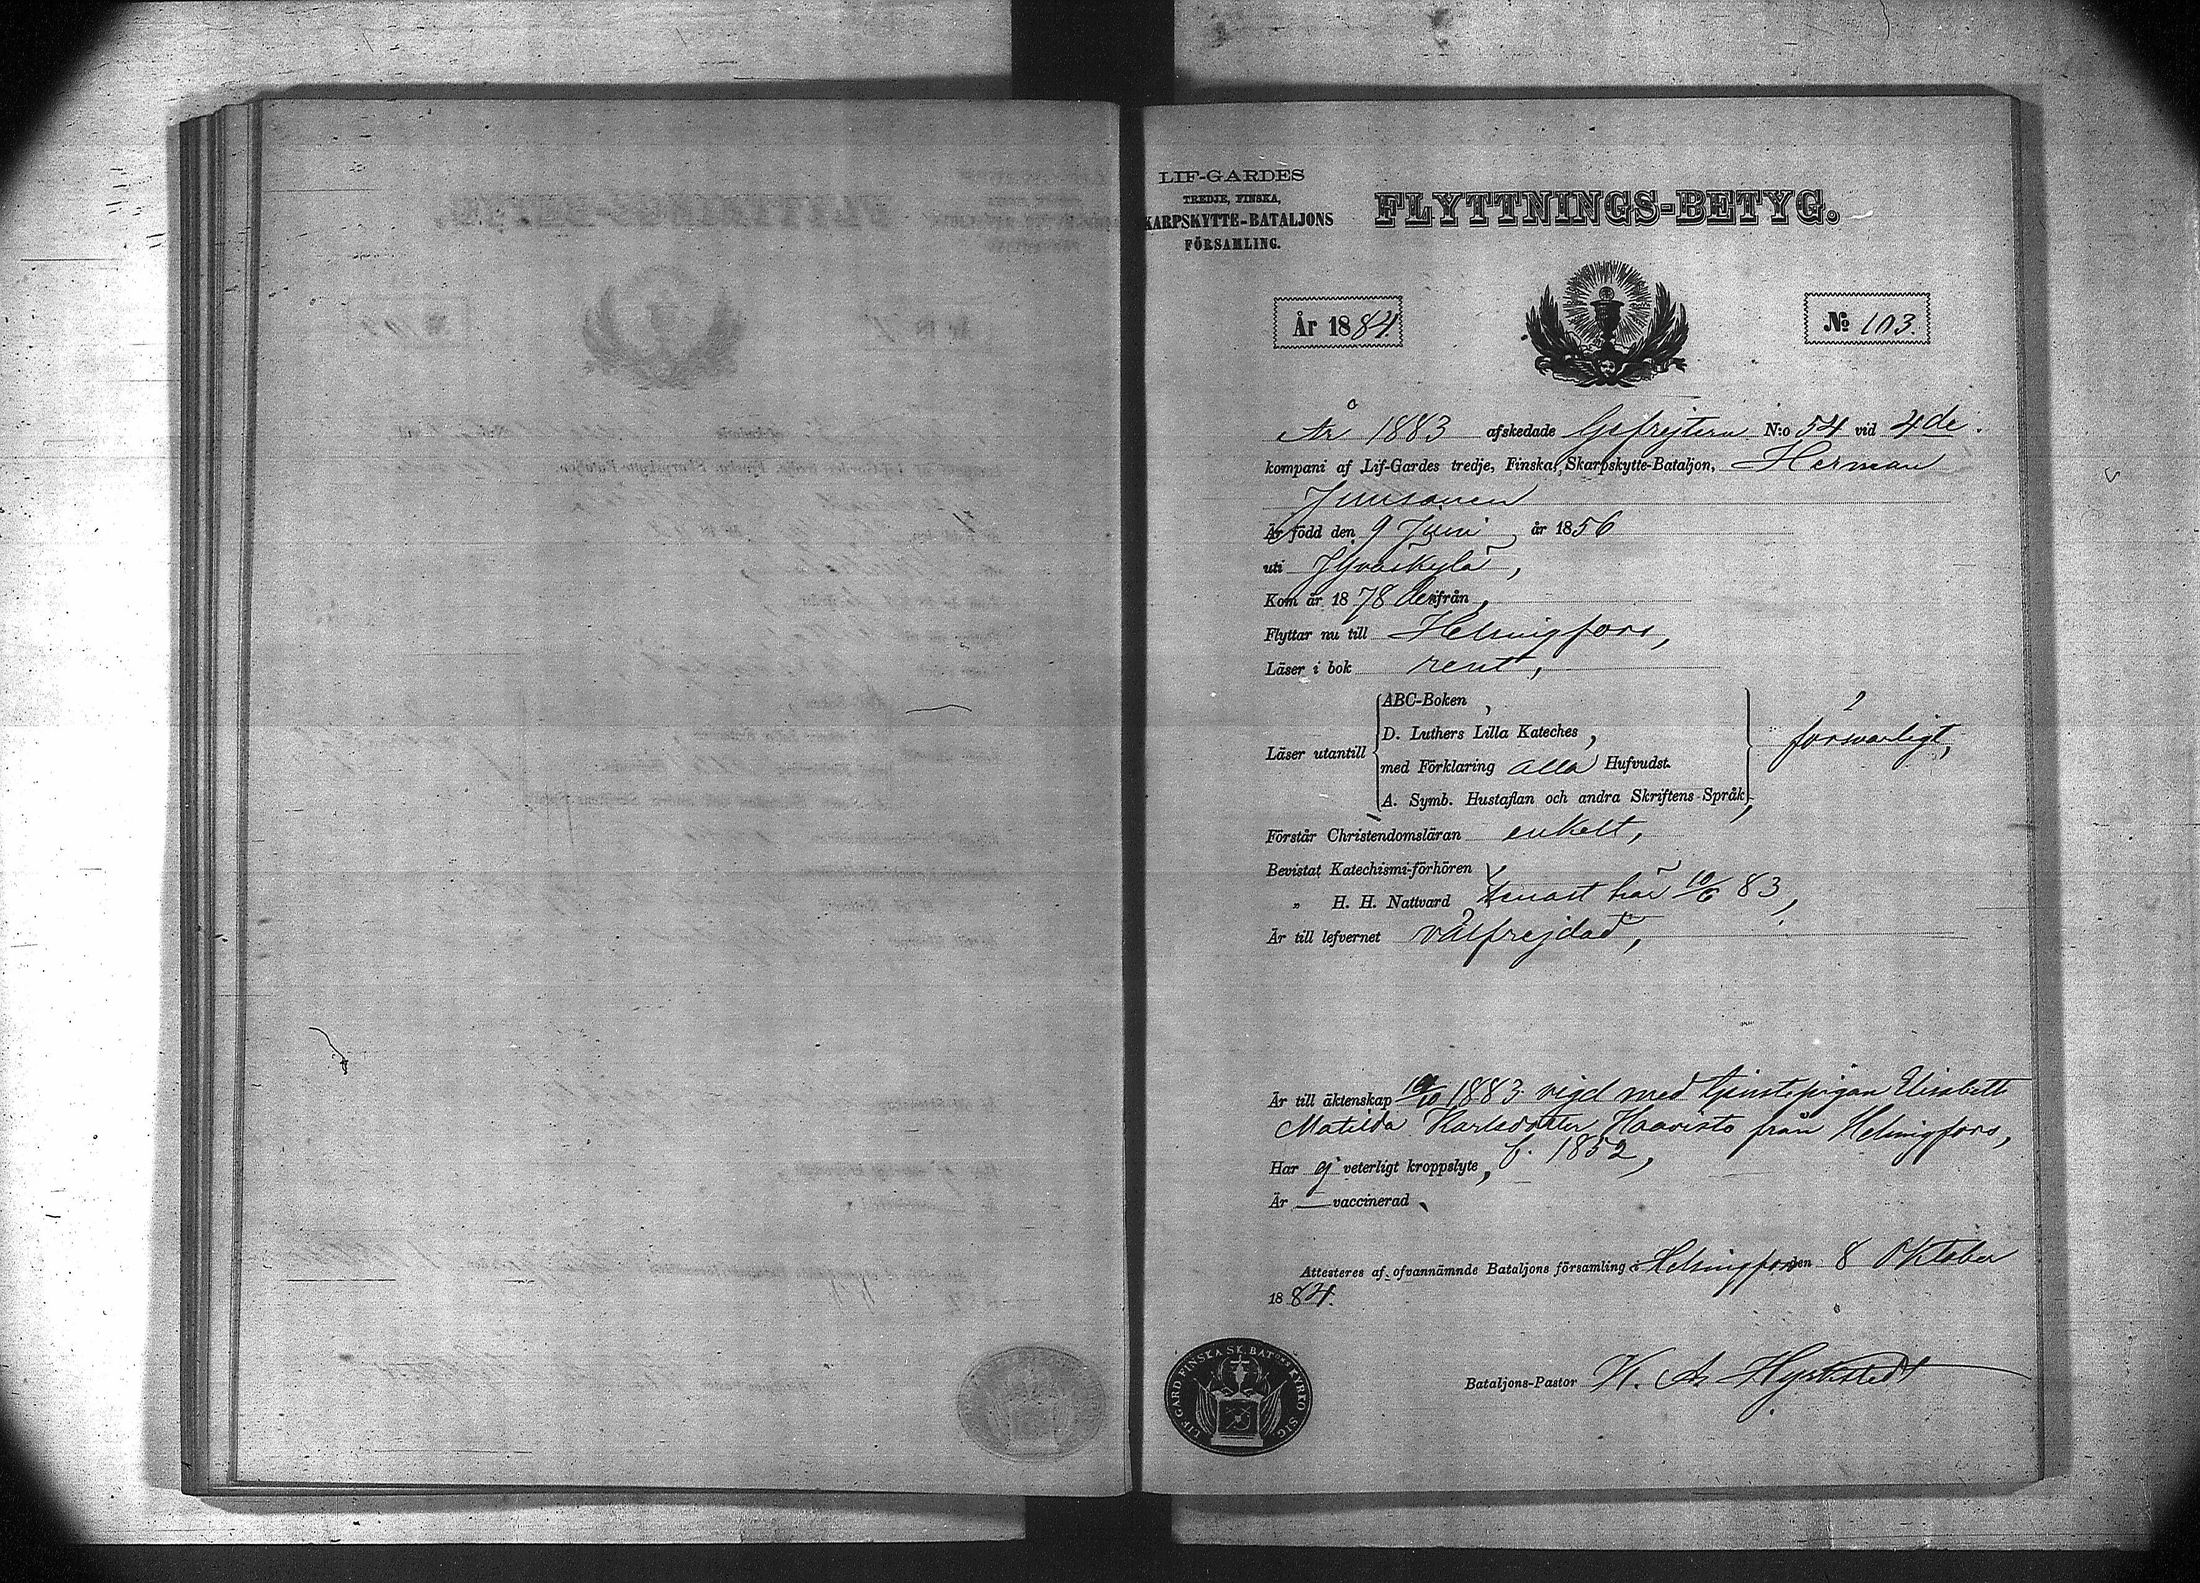 LIF-GARDES
TREDJE, FINSKA,
KARPSKYTTE-BATALJONS
FÖRSAMLING.
FLYTTNINGS-BETYG.
År 1884.
№ 103.
År 1883 afskedade Gefrejtern N:o 54 vid 4de
kompani af Lif-Gardes tredje, Finska, Skarpskytte-Bataljon, Herman
Junsonen
Är född den 9 Juni, år 1856
uti Jyväskylä,
Kom år 1878 derifrån,
Flyttar nu till Helsingfors,
Läser i bok rent,
Läser utantill
ABC-Boken,
D. Luthers Lilla Kateches,
med Förklaring alla Hufvudst.
A. Symb. Hustaflan och andra Skriftens Språk,
försvarligt,
Förstår Christendomsläran enkelt,
Bevistat Katechismi-förhören
„ H. H. Nattvard senast här 10/6 83,
Är till lefvernet välfrejdad,
Är till äktenskap /10 1883 vigd med tjenstepigan Elisabeth
Matilda Karlsdotter Haavisto från Helsingfors,
f. 1852,
Har ej veterligt kroppslyte,
Är — vaccinerad,
Attesteres af ofvannämnde Bataljons församling i Helsingfors den 8 Oktober
1884.
Bataljons-Pastor K. A. Hyrkstedt
LIF GARD FINSKA SK. BAT:NS KYRKO SIG